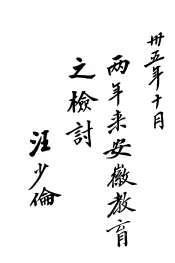 卅五年十月
两年来安徽教育
之檢討
汪少倫